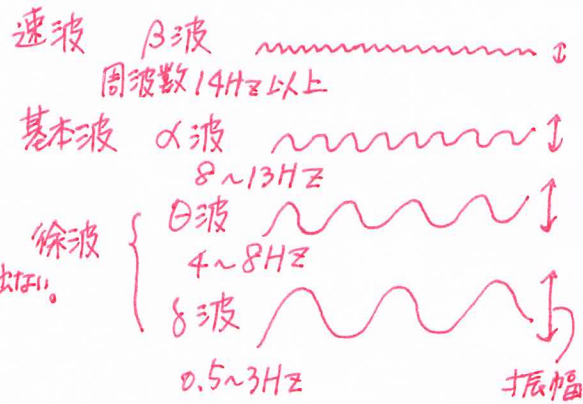 速波 β波
周波数14Hz以上
基本波 α波
8~13Hz
徐波 θ波
4~8Hz
出ない。
δ波
0.5~3Hz
振幅